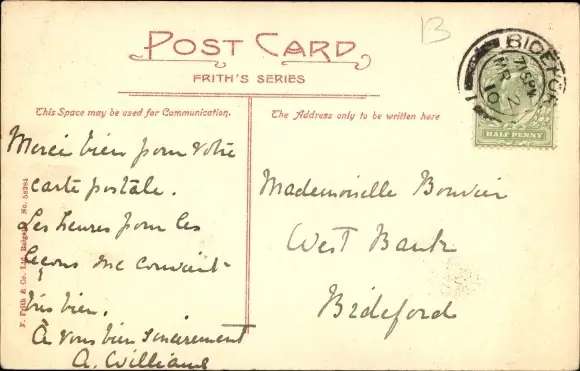 POST CARD
FRITH'S SERIES
B
This Space may be used for Communication.
The Address only to be written here
Merci bien pour votre
carte postale.
Les heures pour les
leçons me convient
très bien.
À vous bien sincèrement
A. Williams
Mademoiselle Bouvier
West Bank
Bideford
F. Frith & Co. Ltd. Reigate. No. 58384
BIDEFOR
7 15PM
MR 2
10
HALF PENNY